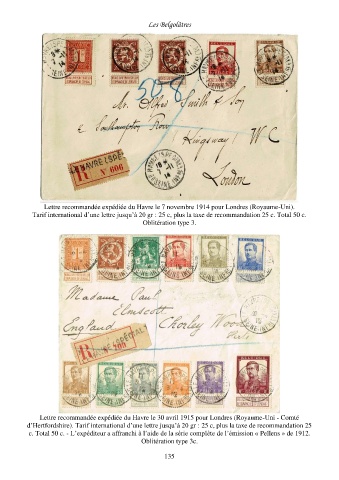 Les Belgolâtres
508
Mr. Alfred Smith & Son
Southampton Row
Kingsway W C
London
R LE HAVRE (SPÉ
N° 606
Lettre recommandée expédiée du Havre le 7 novembre 1914 pour Londres (Royaume-Uni).
Tarif international d'une lettre jusqu'à 20 gr : 25 c, plus la taxe de recommandation 25 c. Total 50 c.
Oblitération type 3.
Madame Paul
Elmscott
England Chorley Wood
Herts
R
Lettre recommandée expédiée du Havre le 30 avril 1915 pour Londres (Royaume-Uni - Comté
d'Hertfordshire). Tarif international d'une lettre jusqu'à 20 gr : 25 c, plus la taxe de recommandation 25
c. Total 50 c. - L'expéditeur a affranchi à l'aide de la série complète de l'émission « Pellens » de 1912.
Oblitération type 3c.
135